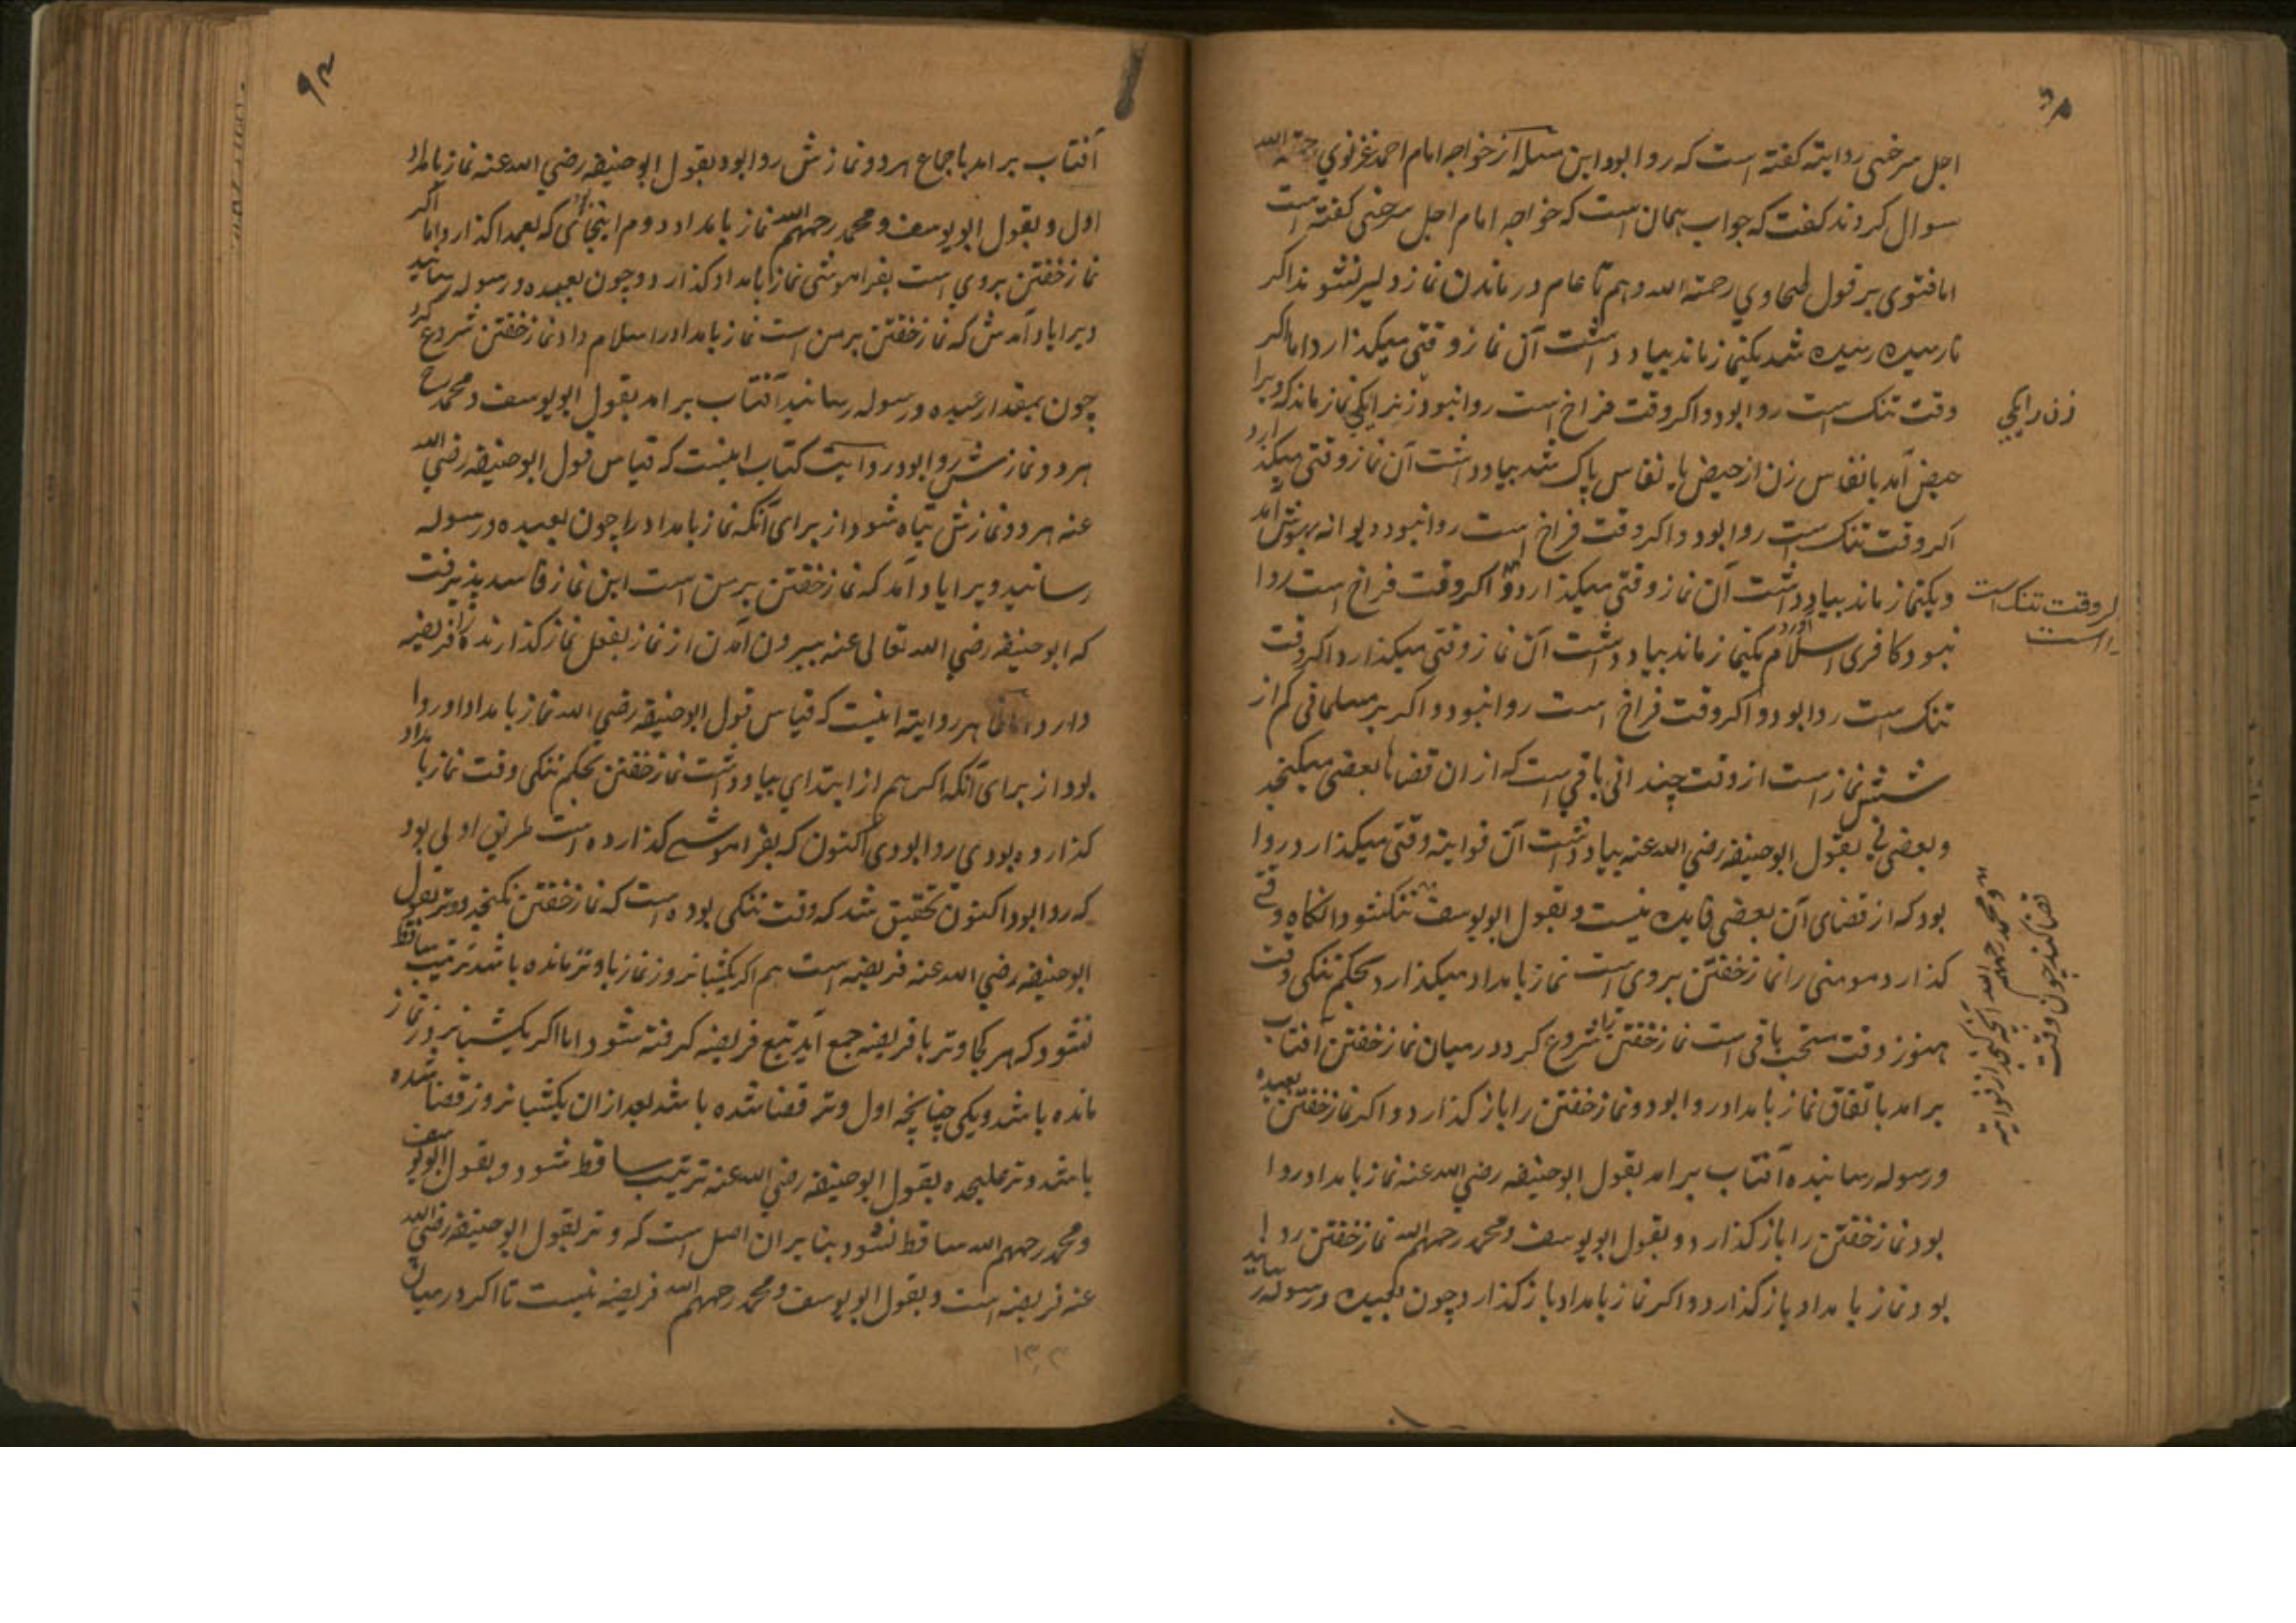 اجل سرخسی روایته کفته است که روا بود و این مسله از خواجه امام احمد غزنوي رحمة الله
سوال کردند کفت که جواب همان است که خواجه امام اجل سرخسی کفته است
اما فتوی بر قول طحاوي رحمة الله و هم تا عام در ماندن نماز دلیر نشوند اکر
نارسیده رسیده شد یکنماز ماند بیاد داشت آن نماز وقتی میکذارد اما اکر
وقت تنک است روا بود و اکر وقت فراخ است روا نبود زنیرا یکی نماز ماند که ویرا
زن را یکی
حیض آمد یا نفاس زن از حیض یا نفاس پاک شد بیاد داشت آن نماز وقتی میکذارد
اکر وقت تنک است روا بود و اکر وقت فراخ است روا نبود دیوانه بهوش امد
و یکنماز ماند بیاد داشت آن نماز وقتی میکذارد اکر وقت فراخ است روا
اکر وقت تنک است
نبود کافری اسلام آورد یکنماز ماند بیاد داشت آن نماز وقتی میکذارد اکر وقت
تنک است روا بود و اکر وقت فراخ است روا نبود و اکر بر مسلمانی کم از
شش نماز است از وقت چندانی باقی است که ازان قضاها بعضی میکنجد
و بعضی نی بقول ابو حنیفه رضي الله عنه بیاد داشت آن فوایته وقتی میکذارد روا
بود که از قضای آن بعضی فایده نیست و بقول ابو یوسف تنک شود انکاه وقتی
و محمد رحمهم الله آنچه کنجد از فوایته
قضا کند چون وقت
کذارد مومنی را نماز خفتن بروی است نماز بامداد میکذارد بحکم تنکی وقت
هنوز وقت مستحب باقی است نماز خفتن را شروع کرد در میان نماز خفتن آفتاب
برامد باتفاق نماز بامداد روا بود و نماز خفتن را باز کذارد و اکر نماز خفتن بعبده
و رسوله رسانیده آفتاب برامد بقول ابو حنیفه رضي الله عنه نماز بامداد روا
بود نماز خفتن را باز کذارد و بقول ابو یوسف و محمد رحمهم الله نماز خفتن روا
بود نماز بامداد باز کذارد و اکر نماز بامداد باز کذارد چون بعبده و رسوله رسانید
۹۴
آفتاب برامد باجماع هر دو نمازش روا بود بقول ابو حنیفه رضي الله عنه نماز بامداد
اول و بقول ابو یوسف و محمد رحمهم الله نماز بامداد دوم اینجا که بعمدا کذارد اما اکر
نماز خفتن بروي است بفراموشی نماز بامداد کذارد و چون بعبده و رسوله رسانید
ویرا یاد آمدش که نماز خفتن بر من است نماز بامداد را سلام داد نماز خفتن شروع کرد
چون بمقدار عبده و رسوله رسانید آفتاب برامد بقول ابو یوسف و محمد رح
هر دو نمازش روا بود روایت کتاب اینست که قیاس قول ابو حنیفه رضي الله
عنه هر دو نمازش تباه شود از برای آنکه نماز بامداد را چون بعبده و رسوله
رسانید ویرا یاد آمد که نماز خفتن بر من است این نماز فاسد پذیرفت
که ابو حنیفه رضي الله تعالی عنه بیرون آمدن از نماز بفعل نماز کذارنده را فریضه
دارد اما ظاهر روایة اینست که قیاس قول ابو حنیفه رضي الله نماز بامداد او روا
بود از برای آنکه اکر هم از ابتدای بیاد داشت نماز خفتن بحکم تنکی وقت نماز بامداد
کذارده بودی روا بودی اکنون که بفراموشی کذارده است طریق اولی بود
که روا بود اکنون تحقیق شد که وقت تنکی بوده است که نماز خفتن نکنجد و وتر بقول
ابو حنیفه رضي الله عنه فریضه است هم اکر یکشبانروز نماز با وتر مانده باشد ترتیب ساقط
نشود که هر کجا وتر با فریضه جمع آید تبع فریضه کرفته شود اما اکر یکشبانروز نماز
مانده باشد و یکی چنانچه اول وتر قضا شده باشد بعد ازان یکشبانروز قضا شده
باشد وتر علیحده بقول ابو حنیفه رضي الله عنه ترتیب ساقط شود و بقول ابو یوسف
و محمد رحمهم الله ساقط نشود بنا بر ان اصل است که وتر بقول ابو حنیفه رضي الله
عنه فریضه است و بقول ابو یوسف و محمد رحمهم الله فریضه نیست تا اکر در میان